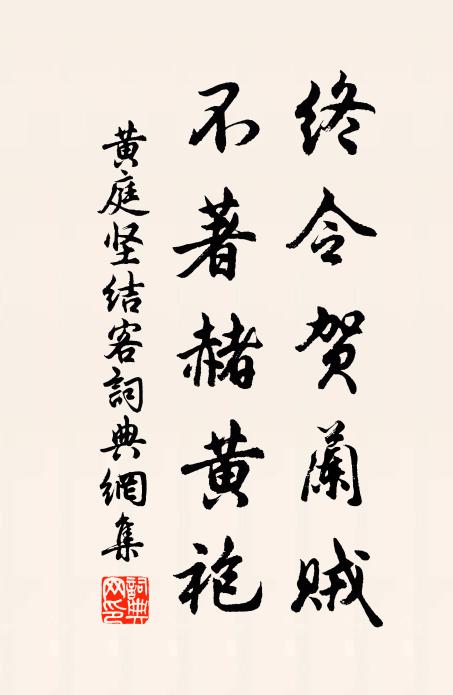 终令贺蘭贼
不著赭黄袍
黄庭坚结客詞典網集
詞典网印